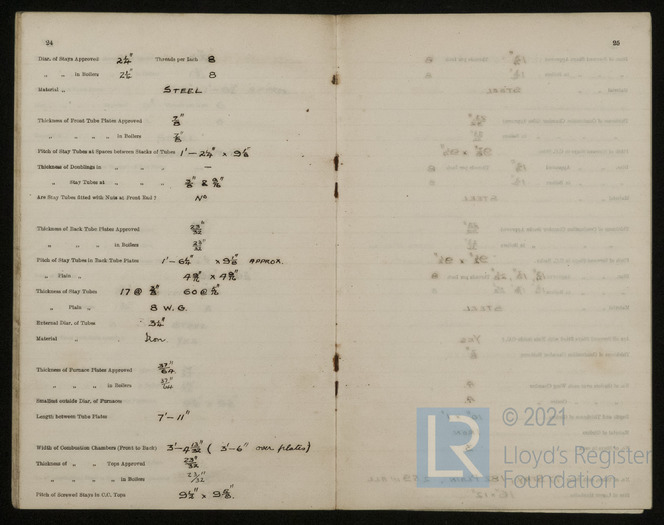 24
Diar. of Stays Approved 2¼" Threads per Inch 8
" " in Boilers 2¼" 8
Material " STEEL
Thickness of Front Tube Plates Approved 7/8"
" " " " in Boilers 7/8"
Pitch of Stay Tubes at Spaces between Stacks of Tubes 1'-2¼" x 9⅛"
Thickness of Doublings in " " " —
" Stay Tubes at " " " 3/8" & 5/16"
Are Stay Tubes fitted with Nuts at Front End? No
Thickness of Back Tube Plates Approved 23/32"
" " " in Boilers 23/32"
Pitch of Stay Tubes in Back Tube Plates 1'-6¼" x 9⅛" APPROX.
" Plain " 4 9/16" x 4 9/16"
Thickness of Stay Tubes 17 @ 3/8" 60 @ 5/16"
" Plain " 8 W.G.
External Diar. of Tubes 3¼"
Material " Iron
Thickness of Furnace Plates Approved 37/64"
" " " in Boilers 37/64"
Smallest outside Diar. of Furnaces
Length between Tube Plates 7'-11"
Width of Combustion Chambers (Front to Back) 3'-4 13/32" ( 3'-6" over plates)
Thickness of " " Tops Approved 23/32"
" " " " in Boilers 23/32"
Pitch of Screwed Stays in C.C. Tops 9¼" x 9⅝"
25
© 2021
Lloyd's Register
Foundation
LR